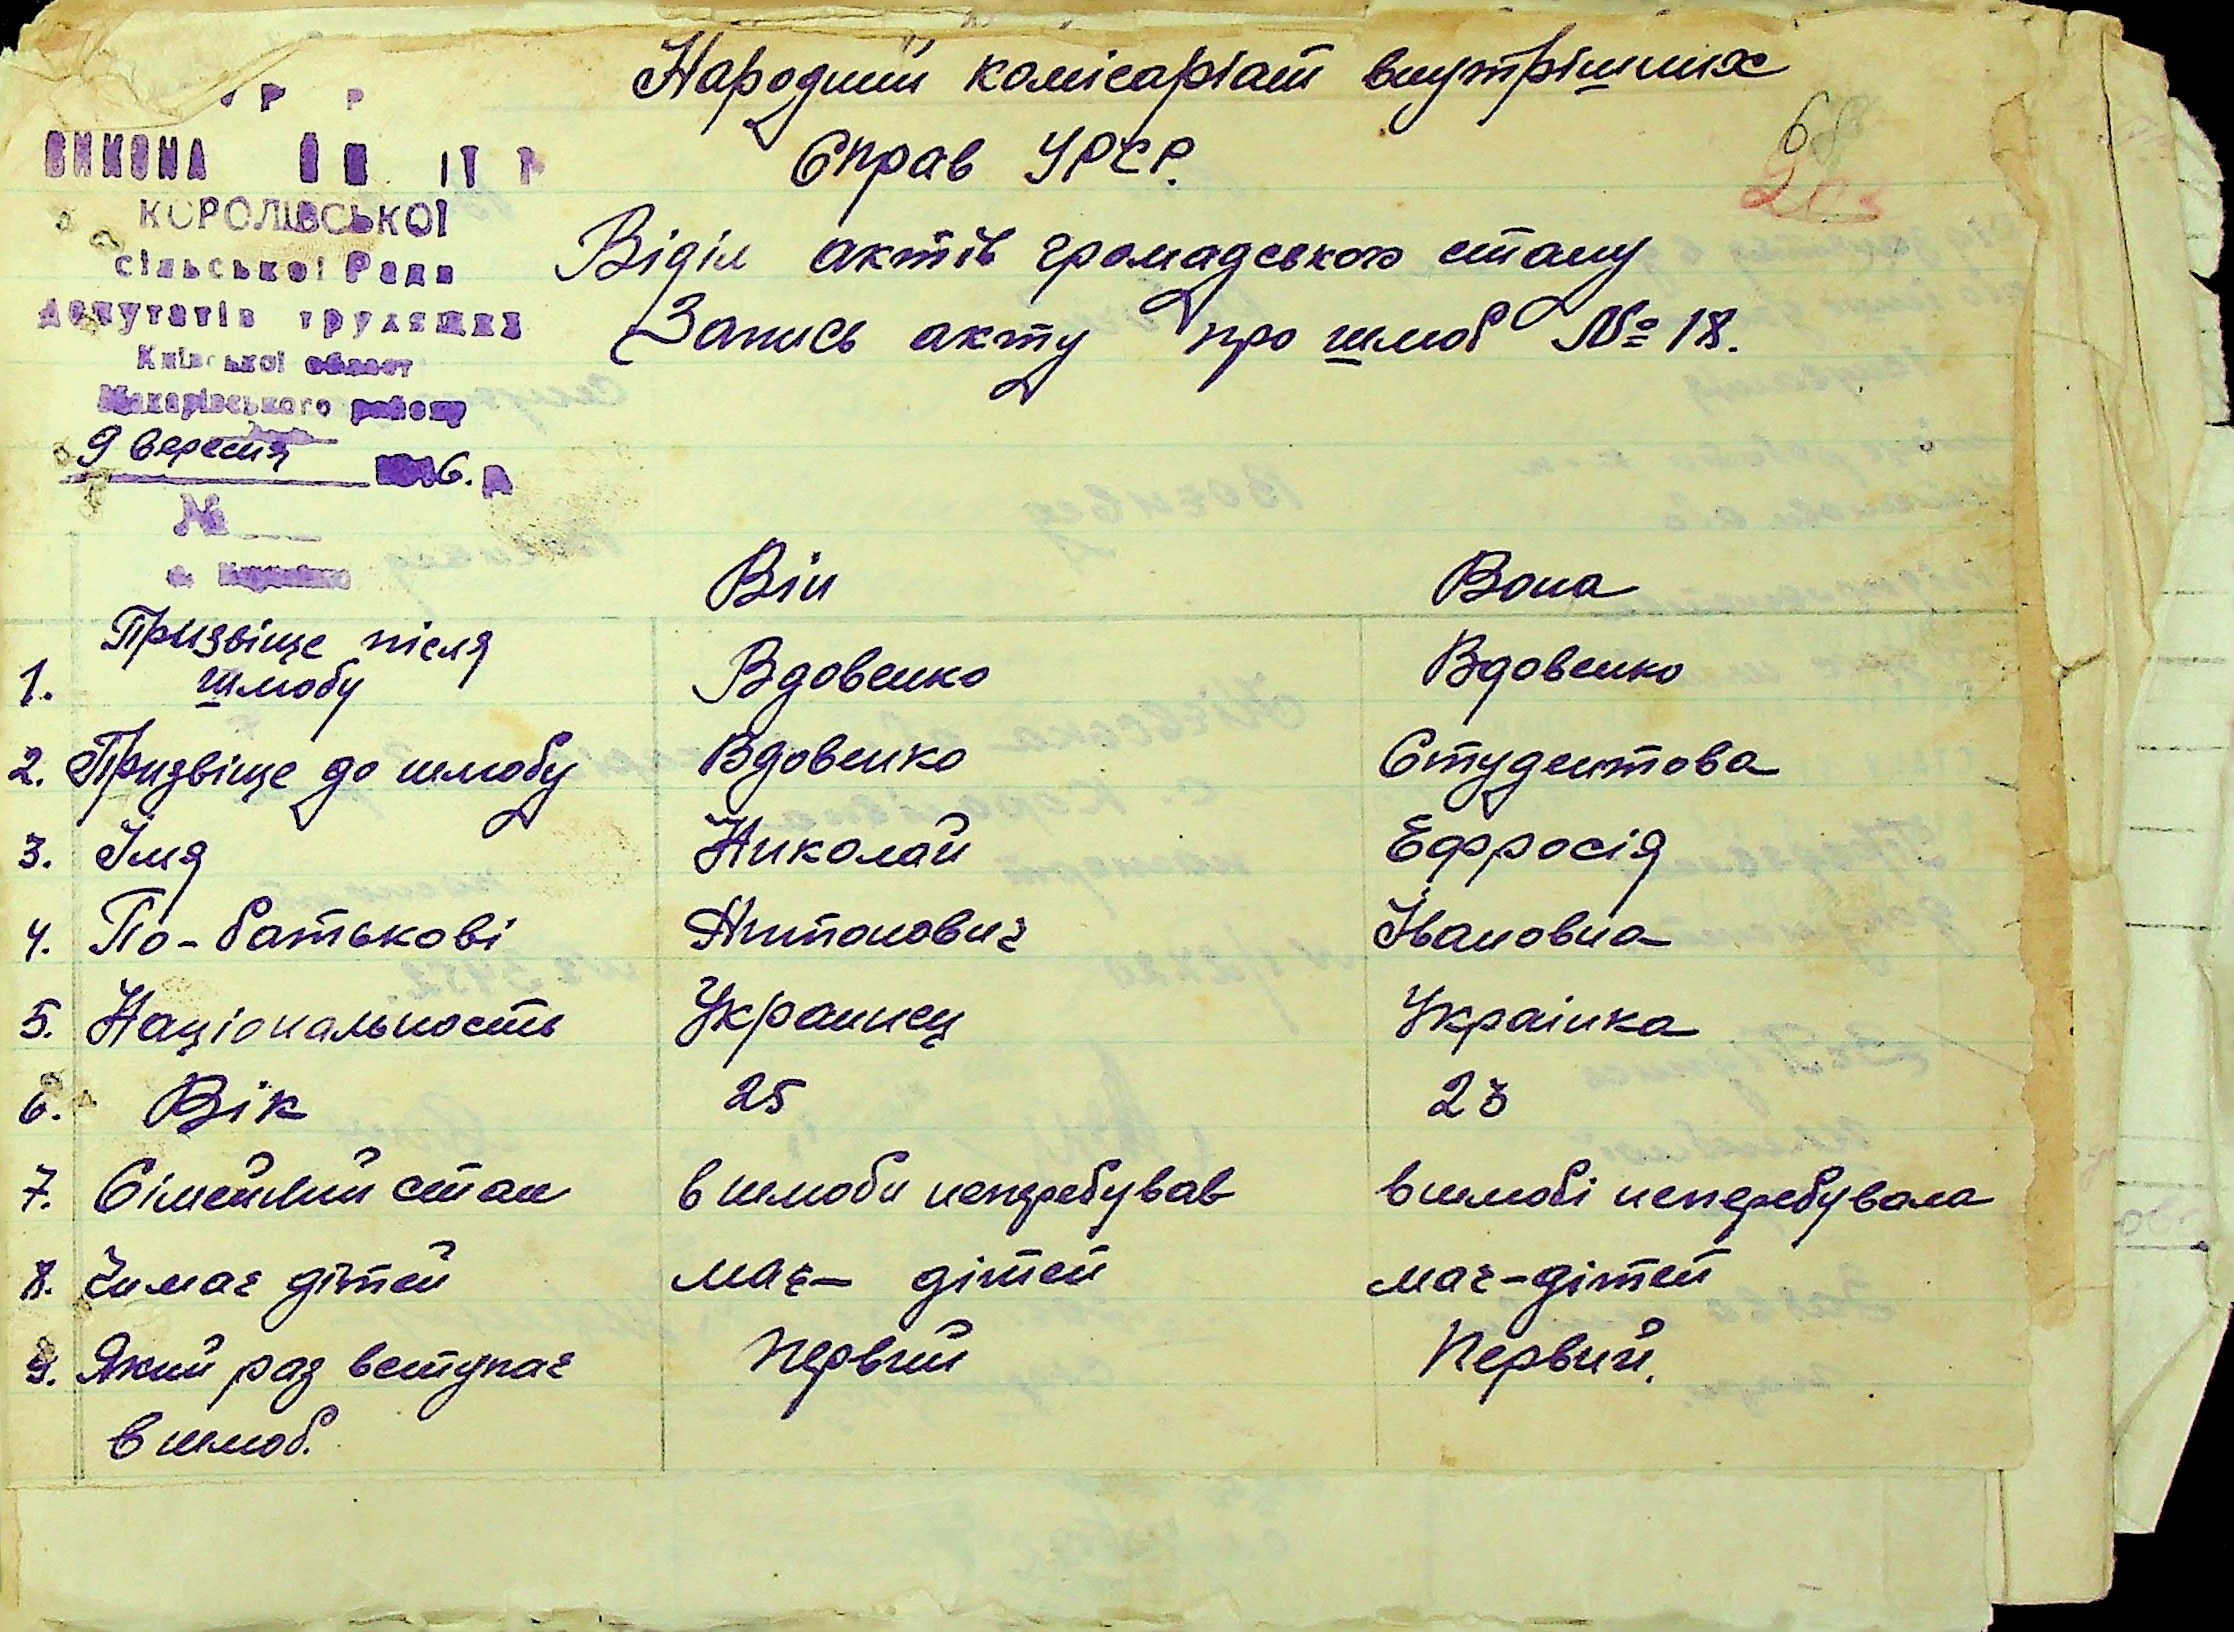 Народний комісаріат внутрішних
Справ УРСР.
68
Віділ актів громадського стану
Запись акту про шлюб № 18.
КОРОЛІВСЬКОЇ
сільської Ради
депутатів трудящих
Київської област
Макарівського району
9 вересня 6. р
№
Він Вона
1. Призвіще після шлюбу Вдовенко Вдовенко
2. Призвіще до шлюбу Вдовенко Студентова
3. Імя Николай Ефросія
4. По-батькові Антонович Івановна
5. Національность Украинец Українка
6. Вік 25 23
7. Сімейний стан в шлюби неперебував в шлюбі неперебувала
8. Чи має дітей має – дітей має – дітей
9. Який раз вступає Первий Первий.
в шлюб.